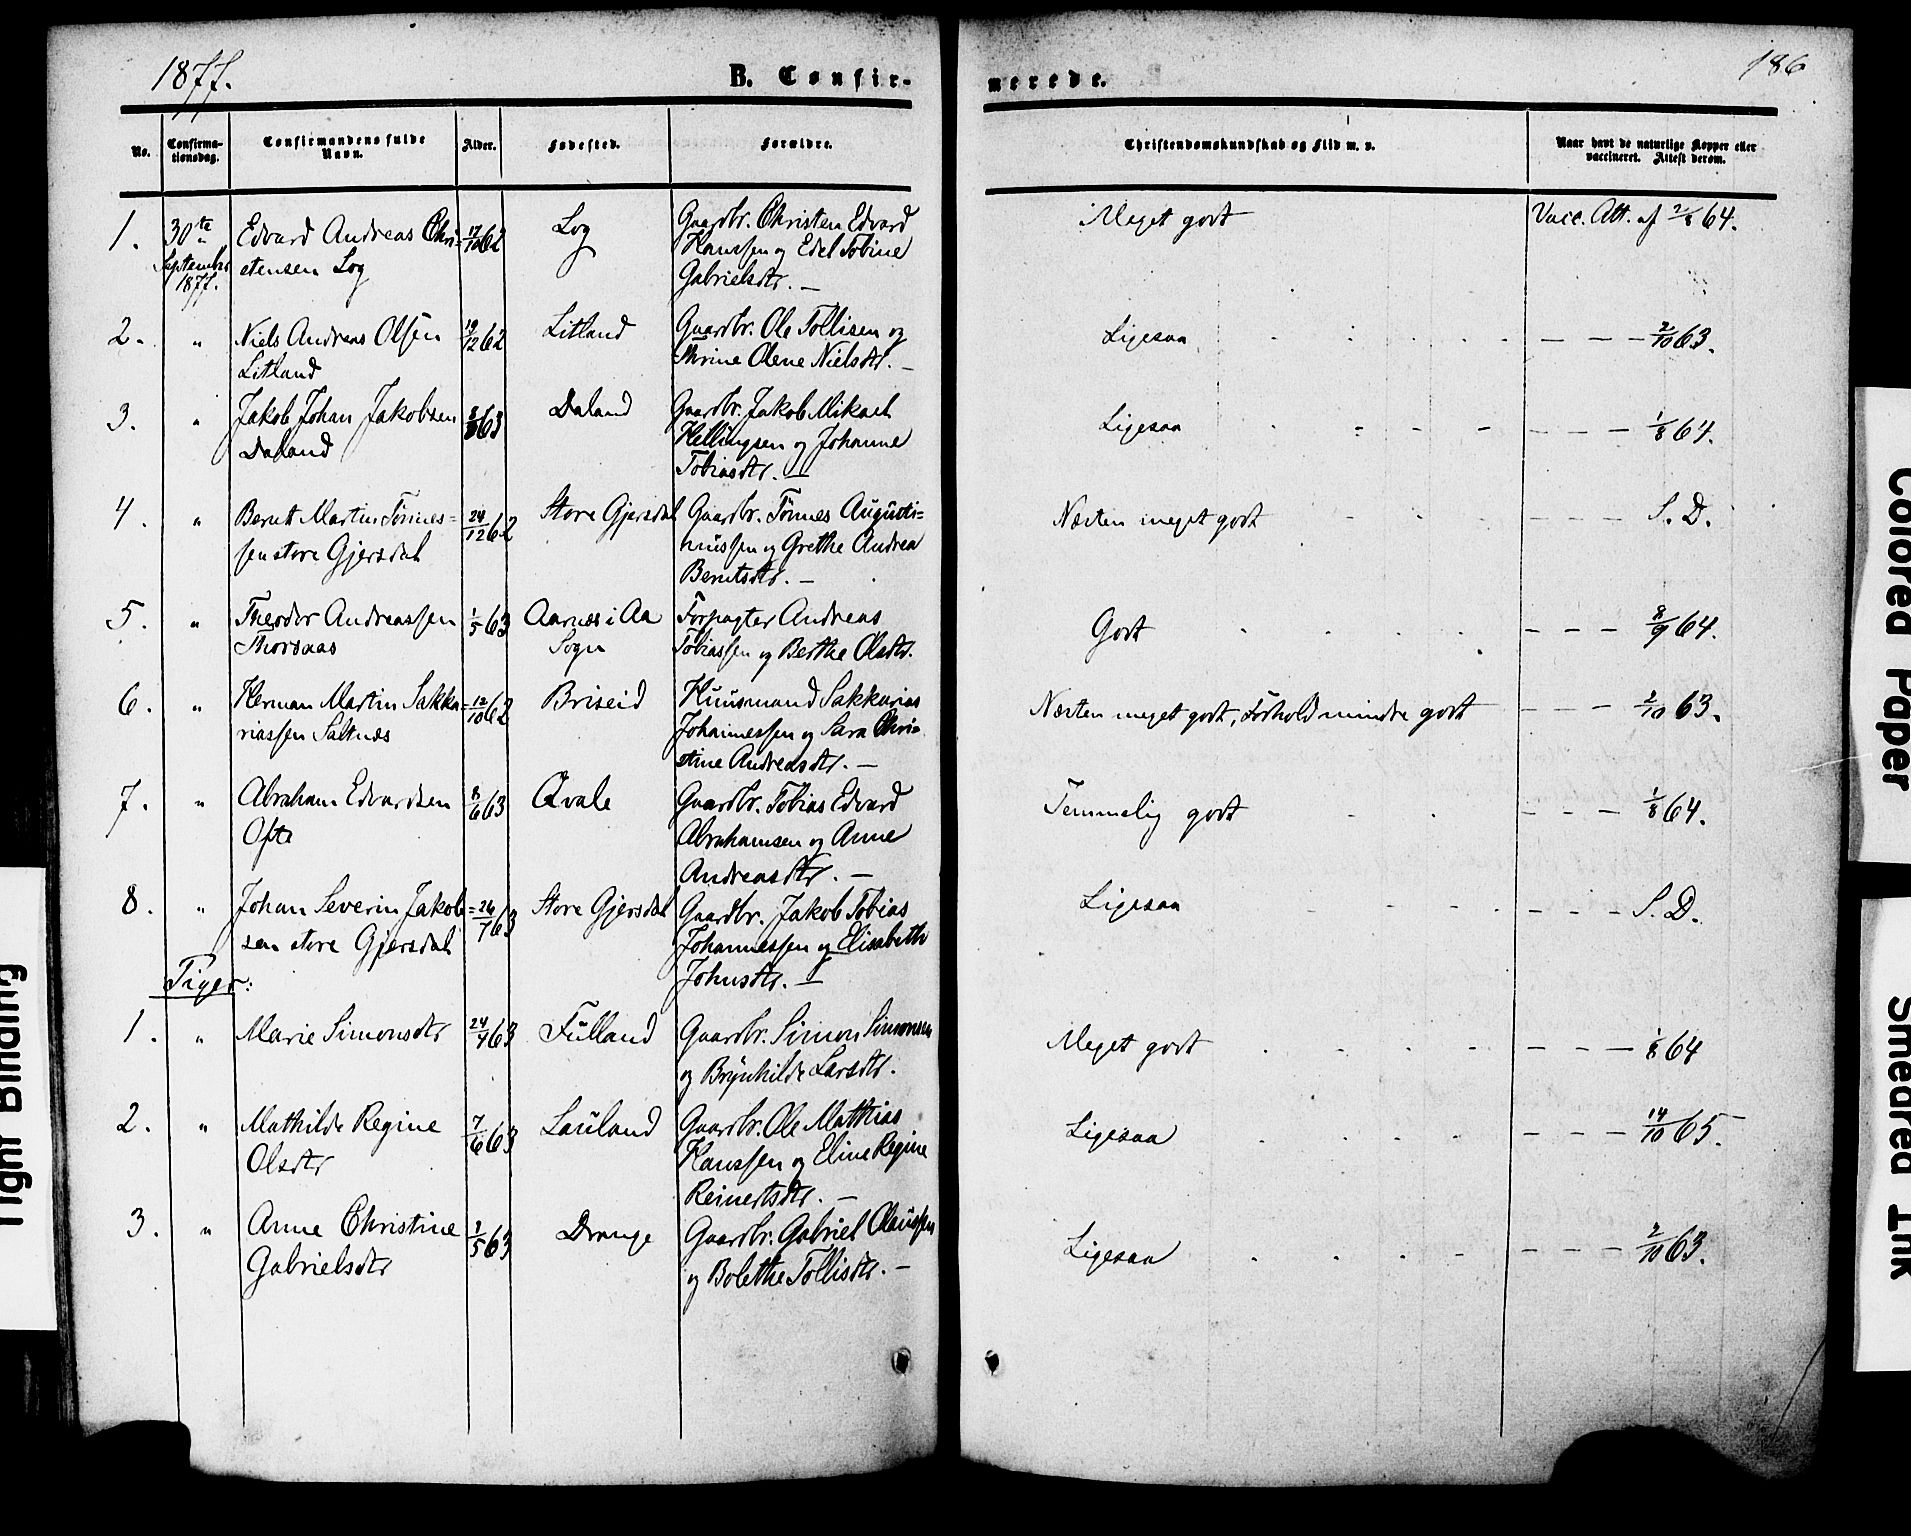 1877.
B. Confir-
merede.
186
No.
Confirma-
tionsdag.
Confirmandens fulde
Navn.
Alder.
Fødested.
Forældre.
Christendomskundskab og Flid m. v.
Naar havt de naturlige Kopper eller
vaccineret. Attest derom.
1. 30te Edvard Andreas Chri- 17/10 62 Log Gaardbr. Christen Edvard Meget godt Vacc. Att. af 2/8 64.
September stensen Log Hanssen og Edel Tobine
1877. Gabrielsdtr. —
2. " Niels Andreas Olsen 19/12 62 Litland Gaardbr. Ole Tollisen og Ligesaa — — — 2/10 63.
Litland Thrine Olene Nielsdtr. —
3. " Jakob Johan Jakobsen 63 Daland Gaardbr. Jakob Mikael Ligesaa — — — 1/8 64.
Daland Hellingsen og Johanne
Tobiasdtr. —
4. " Berntt Martin Tönnes= 24/12 62 Store Gjersdal Gaardbr. Tönnes Augusti= Næsten meget godt — — — S. D.
sen store Gjersdal nussen og Grethe Andrea
Berntsdtr. —
5. " Theodor Andreassen 1/5 63 Aarnæs i Aa Forpagter Andreas Godt — — — 8/9 64.
Thorsaas Sogn Tobiassen og Berthe Olsdtr.
6. " Herman Martin Sakka= 12/10 62 Briseid Huusmand Sakkarias Næsten meget godt, Forhold mindre godt — — — 2/10 63.
riassen Saltnæs Johannessen og Sara Chri=
stine Andreasdtr. —
7. " Abraham Edvardsen 8/6 63 Qvale Gaardbr. Tobias Edvard Temmelig godt — — — 1/8 64.
Ofte Abrahamsen og Anne
Andreasdtr. —
8. " Johan Severin Jakob= 26/7 63 Store Gjersdal Gaardbr. Jakob Tobias Ligesaa — — — S. D.
sen store Gjersdal Johannessen og Elisabeth
Johnsdtr. —
Piger:
1. " Marie Simonsdtr 24/4 63 Fulland Gaardbr. Simon Simonsen Meget godt — — — 1/8 64
og Brynhilde Larsdtr.
2. " Mathilde Regine 7/6 63 Lauland Gaardbr. Ole Mathias Ligesaa — — — 14/10 65.
Olsdtr Hanssen og Eline Regine
Reinertsdtr. —
3. " Anne Christine 63 Drange Gaardbr. Gabriel Olaussen Ligesaa — — — 2/10 63.
Gabrielsdtr og Bolethe Tollisdtr. —
Tight Binding
Colored Paper
Smeared Ink